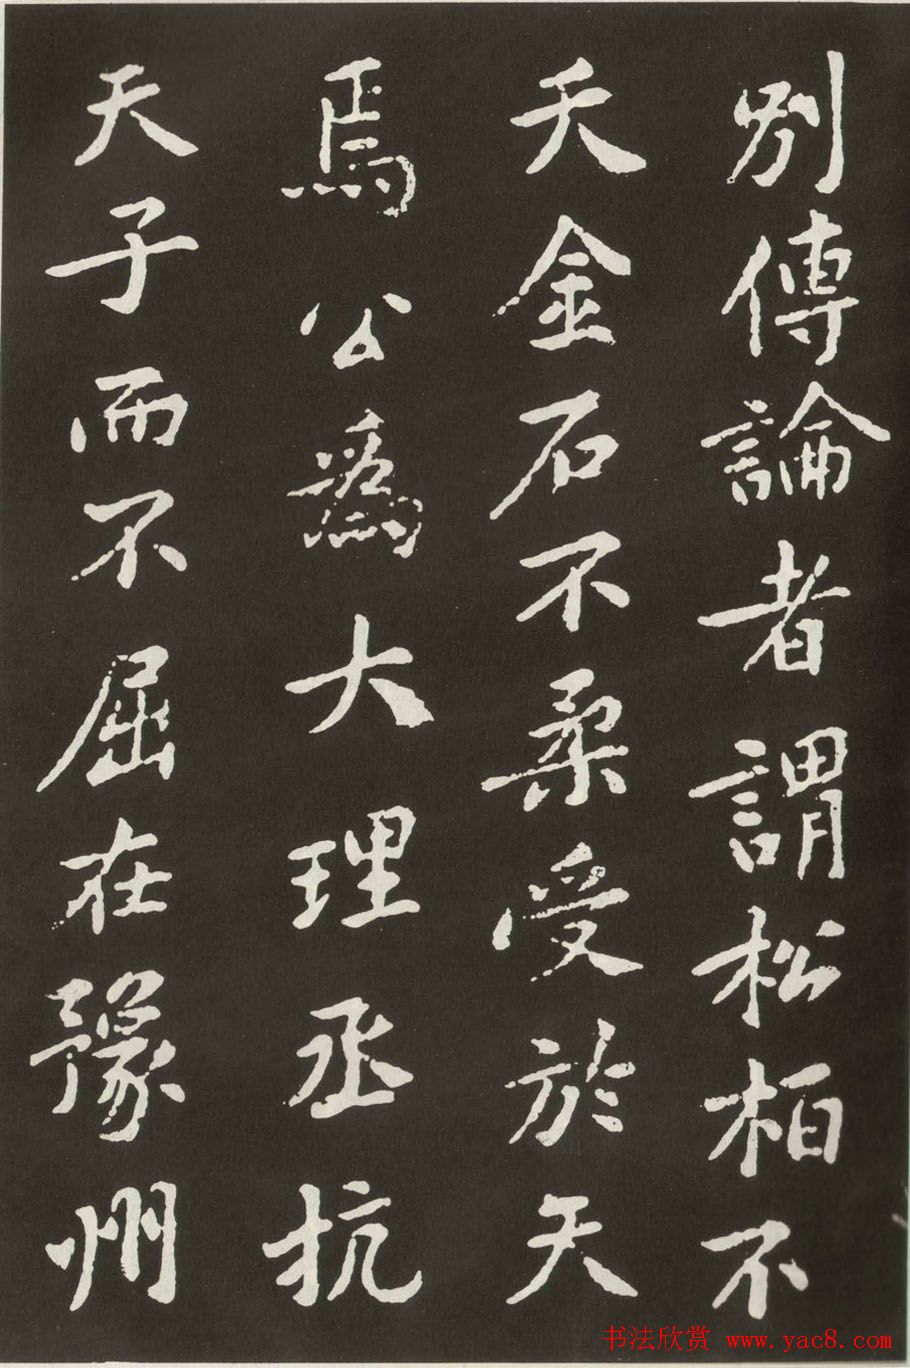 別傳論者謂松柏不
夭金石不柔受於天
焉公為大理丞抗
天子而不屈在豫州
书法欣赏 www.yac8.com